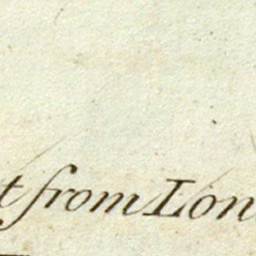 t from Lon